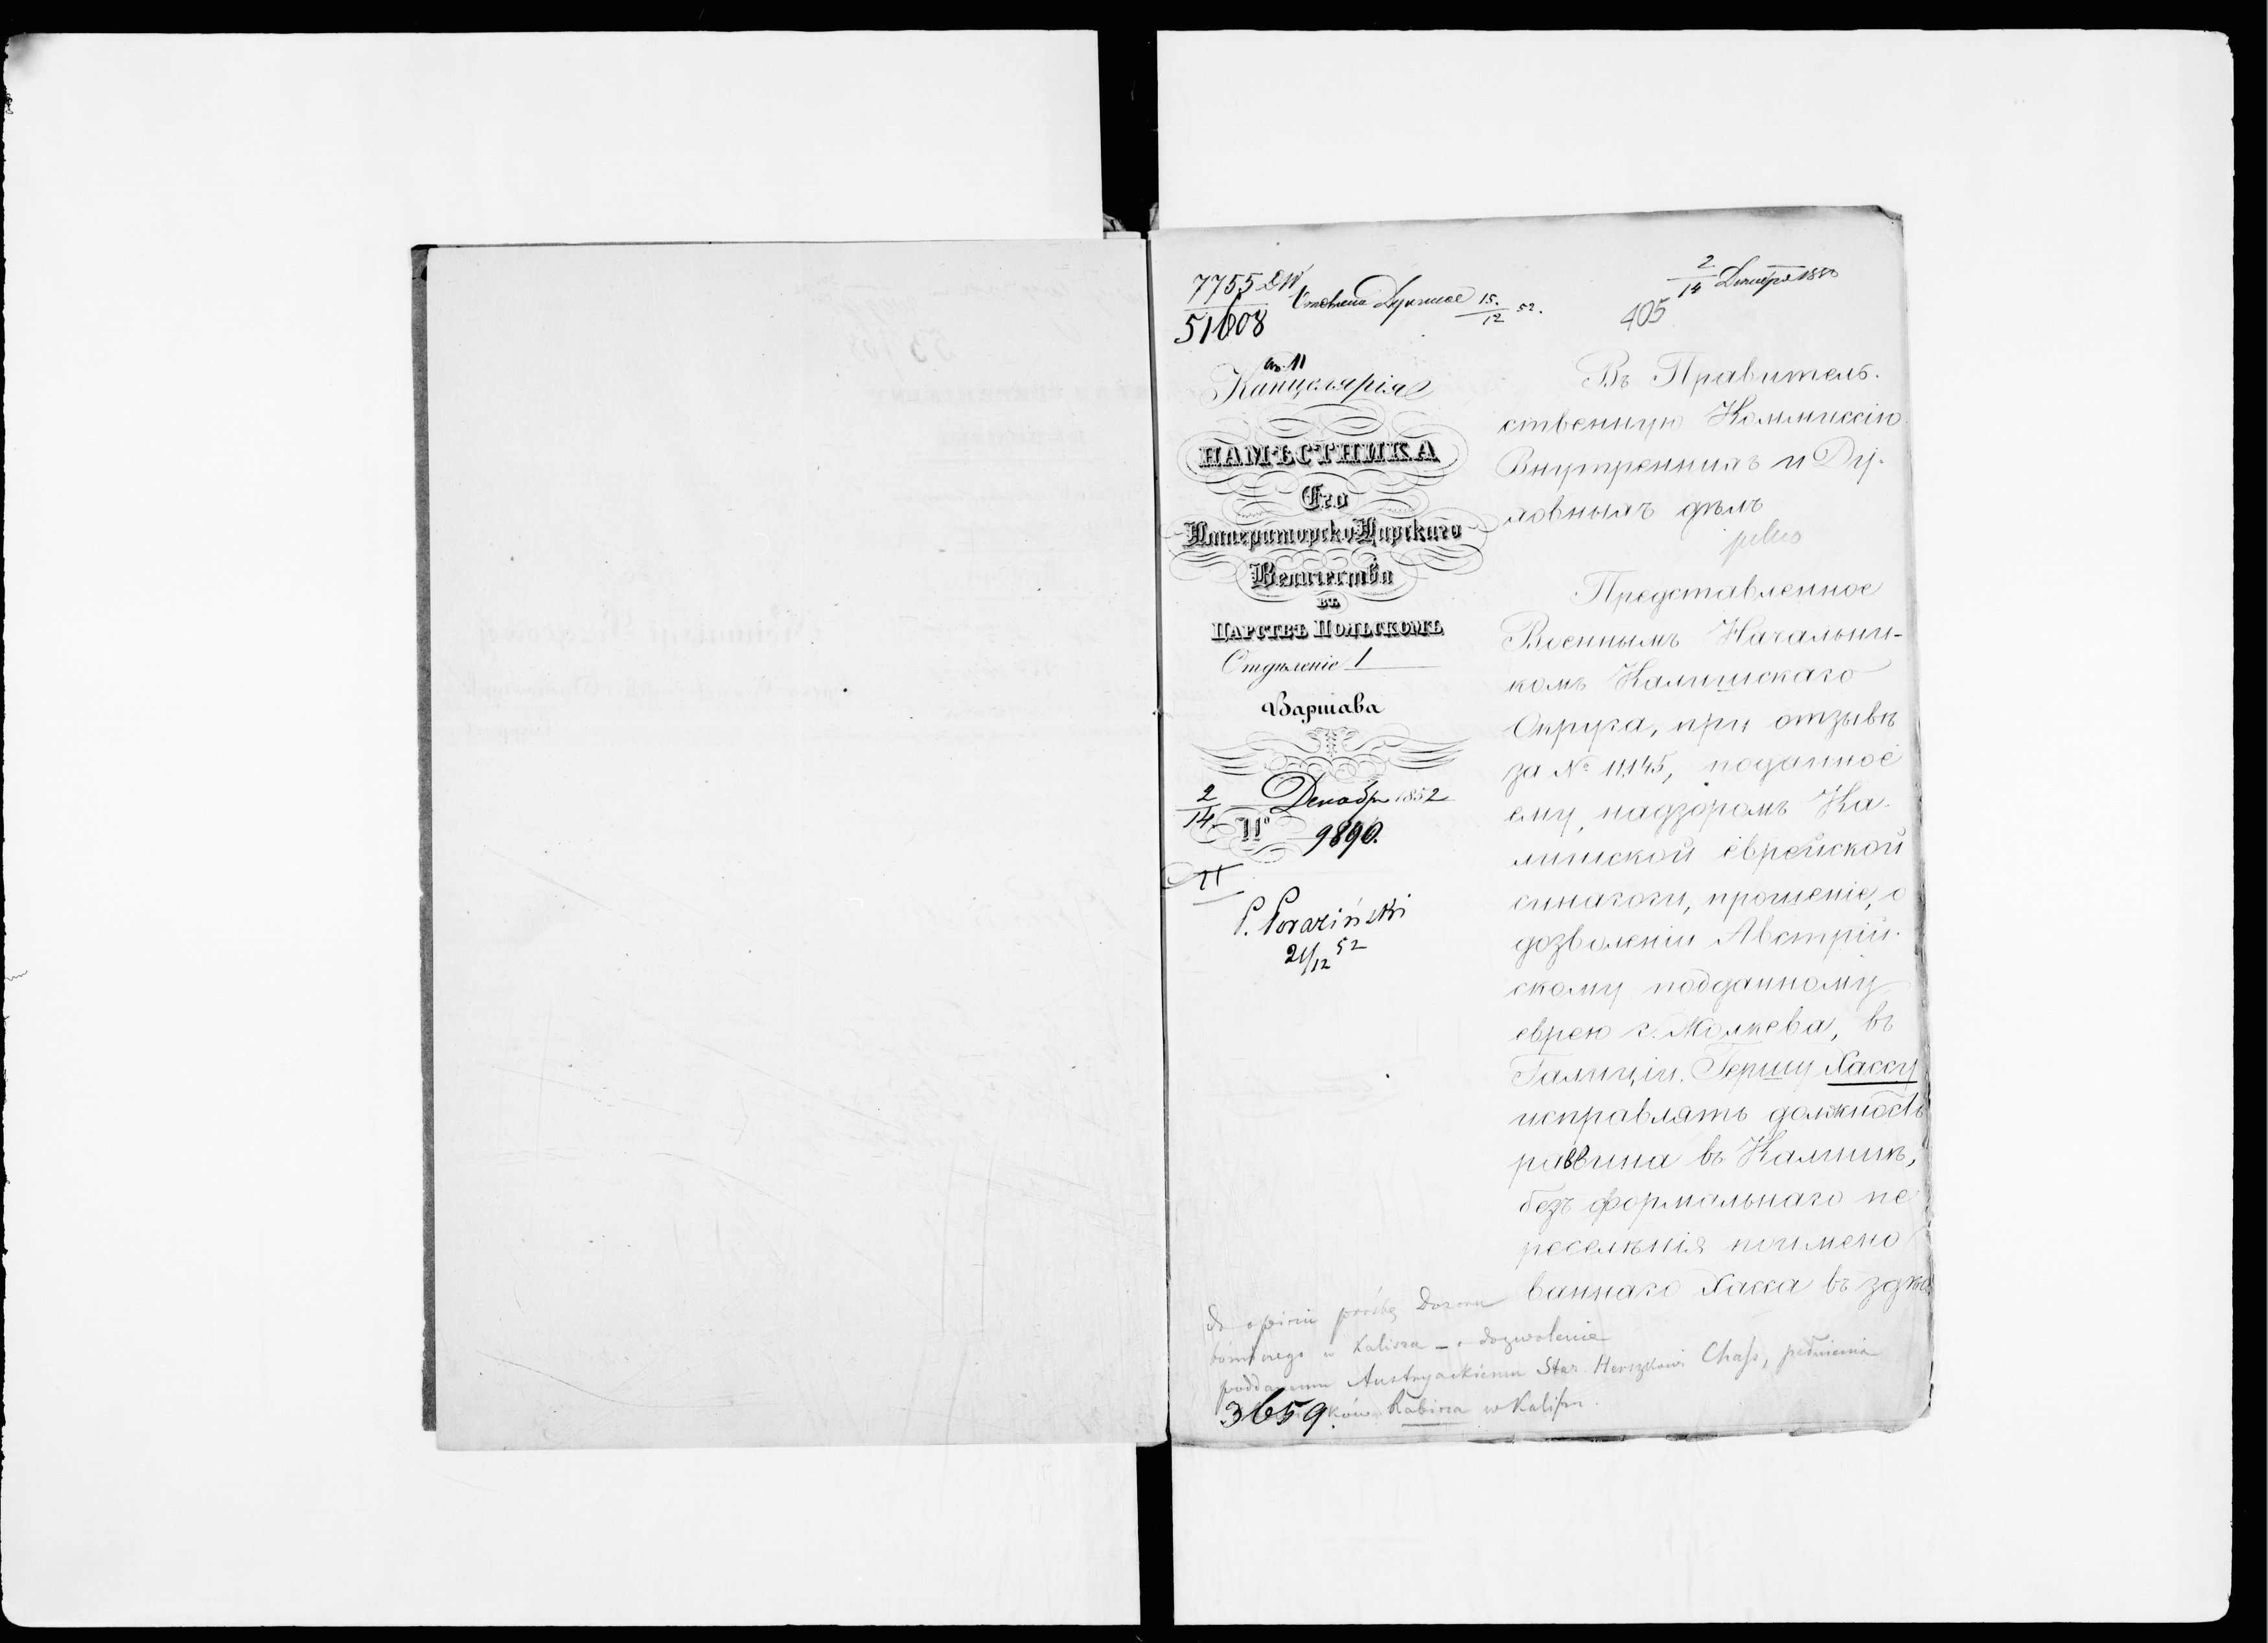 7755 DW
51608
15/12 52.
2/14 Декабря 1852
405
Канцелярія
НАМѢСТНИКА
Его
Императорско-Царскаго
Величества
въ
Царствѣ Польскомъ
Отдѣленіе 1
Варшава
2/14 Декабр 1852
№ 9890.
P. Poraziński
21/12 52
Въ Правитель-
ственную Коммиссію
Внутреннихъ и Ду-
ховныхъ дѣлъ
Представленное
Военнымъ Начальни-
комъ Калишскаго
Округа, при отзывѣ
за № 11,145, поданное
ему, надзоромъ Ка-
лишской еврейской
синагоги, прошеніе, о
дозволеніи Австрій-
скому подданному
еврею г. Жолкева, въ
Галиціи, Гершу Хассу
исправлять должность
раввина въ Калишѣ,
безъ формальнаго пе
реселѣнія поимено
ваннаго Хасса въ здѣш
do opinii prośbę Dozoru
bóżniczego w Kalisza – o dozwolenie
poddanemu Austryackiemu Star. Herszkowi Chass, pełnienia
ków Rabina w Kaliszu.
3659.